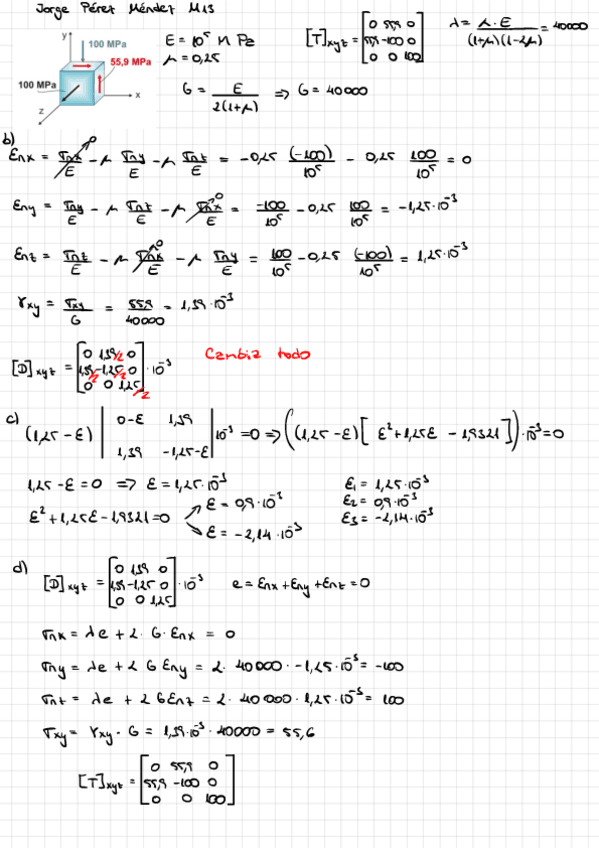 Jorge Pérez Méndez M13
y 100 MPa
55,9 MPa
100 MPa
x
z
E = 10⁵ M Pa
μ = 0,25
G = E / 2(1+μ) => G = 40000
[T]xyz = [0 55,9 0
55,9 -100 0
0 0 100]
λ = μ·E / (1+μ)(1-2μ) = 40000
b)
εnx = σnx/E - μ σny/E - μ σnz/E = -0,25 (-100)/10⁵ - 0,25 100/10⁵ = 0
εny = σny/E - μ σnz/E - μ σnx/E = -100/10⁵ - 0,25 100/10⁵ = -1,25·10⁻³
εnz = σnz/E - μ σnx/E - μ σny/E = 100/10⁵ - 0,25 (-100)/10⁵ = 1,25·10⁻³
γxy = σxy/G = 55,9/40000 = 1,39·10⁻³
[D]xyz = [0 1,39/2 0
1,39/2 -1,25/2 0
0 0 1,25/2] · 10⁻³
Cambia todo
c)
(1,25 - ε) |0-ε 1,39
1,39 -1,25-ε| 10⁻³ = 0 => ((1,25-ε)[ε²+1,25ε - 1,9321])·10⁻³ = 0
1,25 - ε = 0 => ε = 1,25·10⁻³
ε² + 1,25ε - 1,9321 = 0
ε = 0,9·10⁻³
ε = -2,14·10⁻³
ε1 = 1,25·10⁻³
ε2 = 0,9·10⁻³
ε3 = -2,14·10⁻³
d)
[D]xyz = [0 1,39 0
1,39 -1,25 0
0 0 1,25] · 10⁻³
e = εnx + εny + εnz = 0
σnx = λe + 2·G·εnx = 0
σny = λe + 2 G εny = 2·40000·-1,25·10⁻³ = -100
σnz = λe + 2 G εnz = 2·40000·1,25·10⁻³ = 100
σxy = γxy·G = 1,39·10⁻³·40000 = 55,6
[T]xyz = [0 55,9 0
55,9 -100 0
0 0 100]